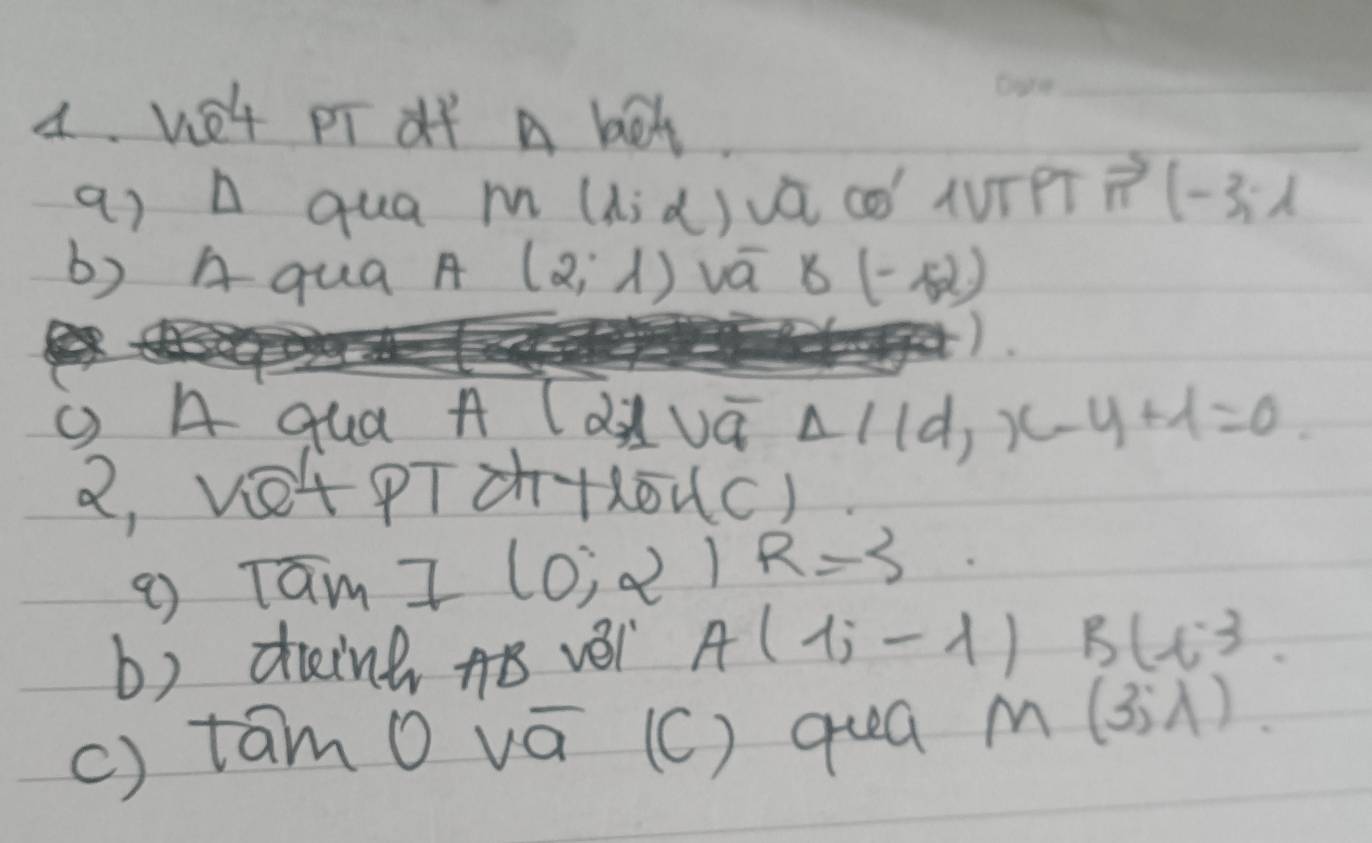 1. Viết PT đt Δ biết.
a) Δ qua M (1; 2) và có 1VTPT n⃗ (-3; 1
b) Δ qua A (2; 1) và B (-
).
c) Δ qua A (2;1 và Δ // d, x-y+1=0.
2, Viết PT đtròn (C).
a) Tâm I (0; 2) R=3.
b) đkính AB với A(1; -1) B(1;3.
c) Tâm O và (C) qua M (3;1).